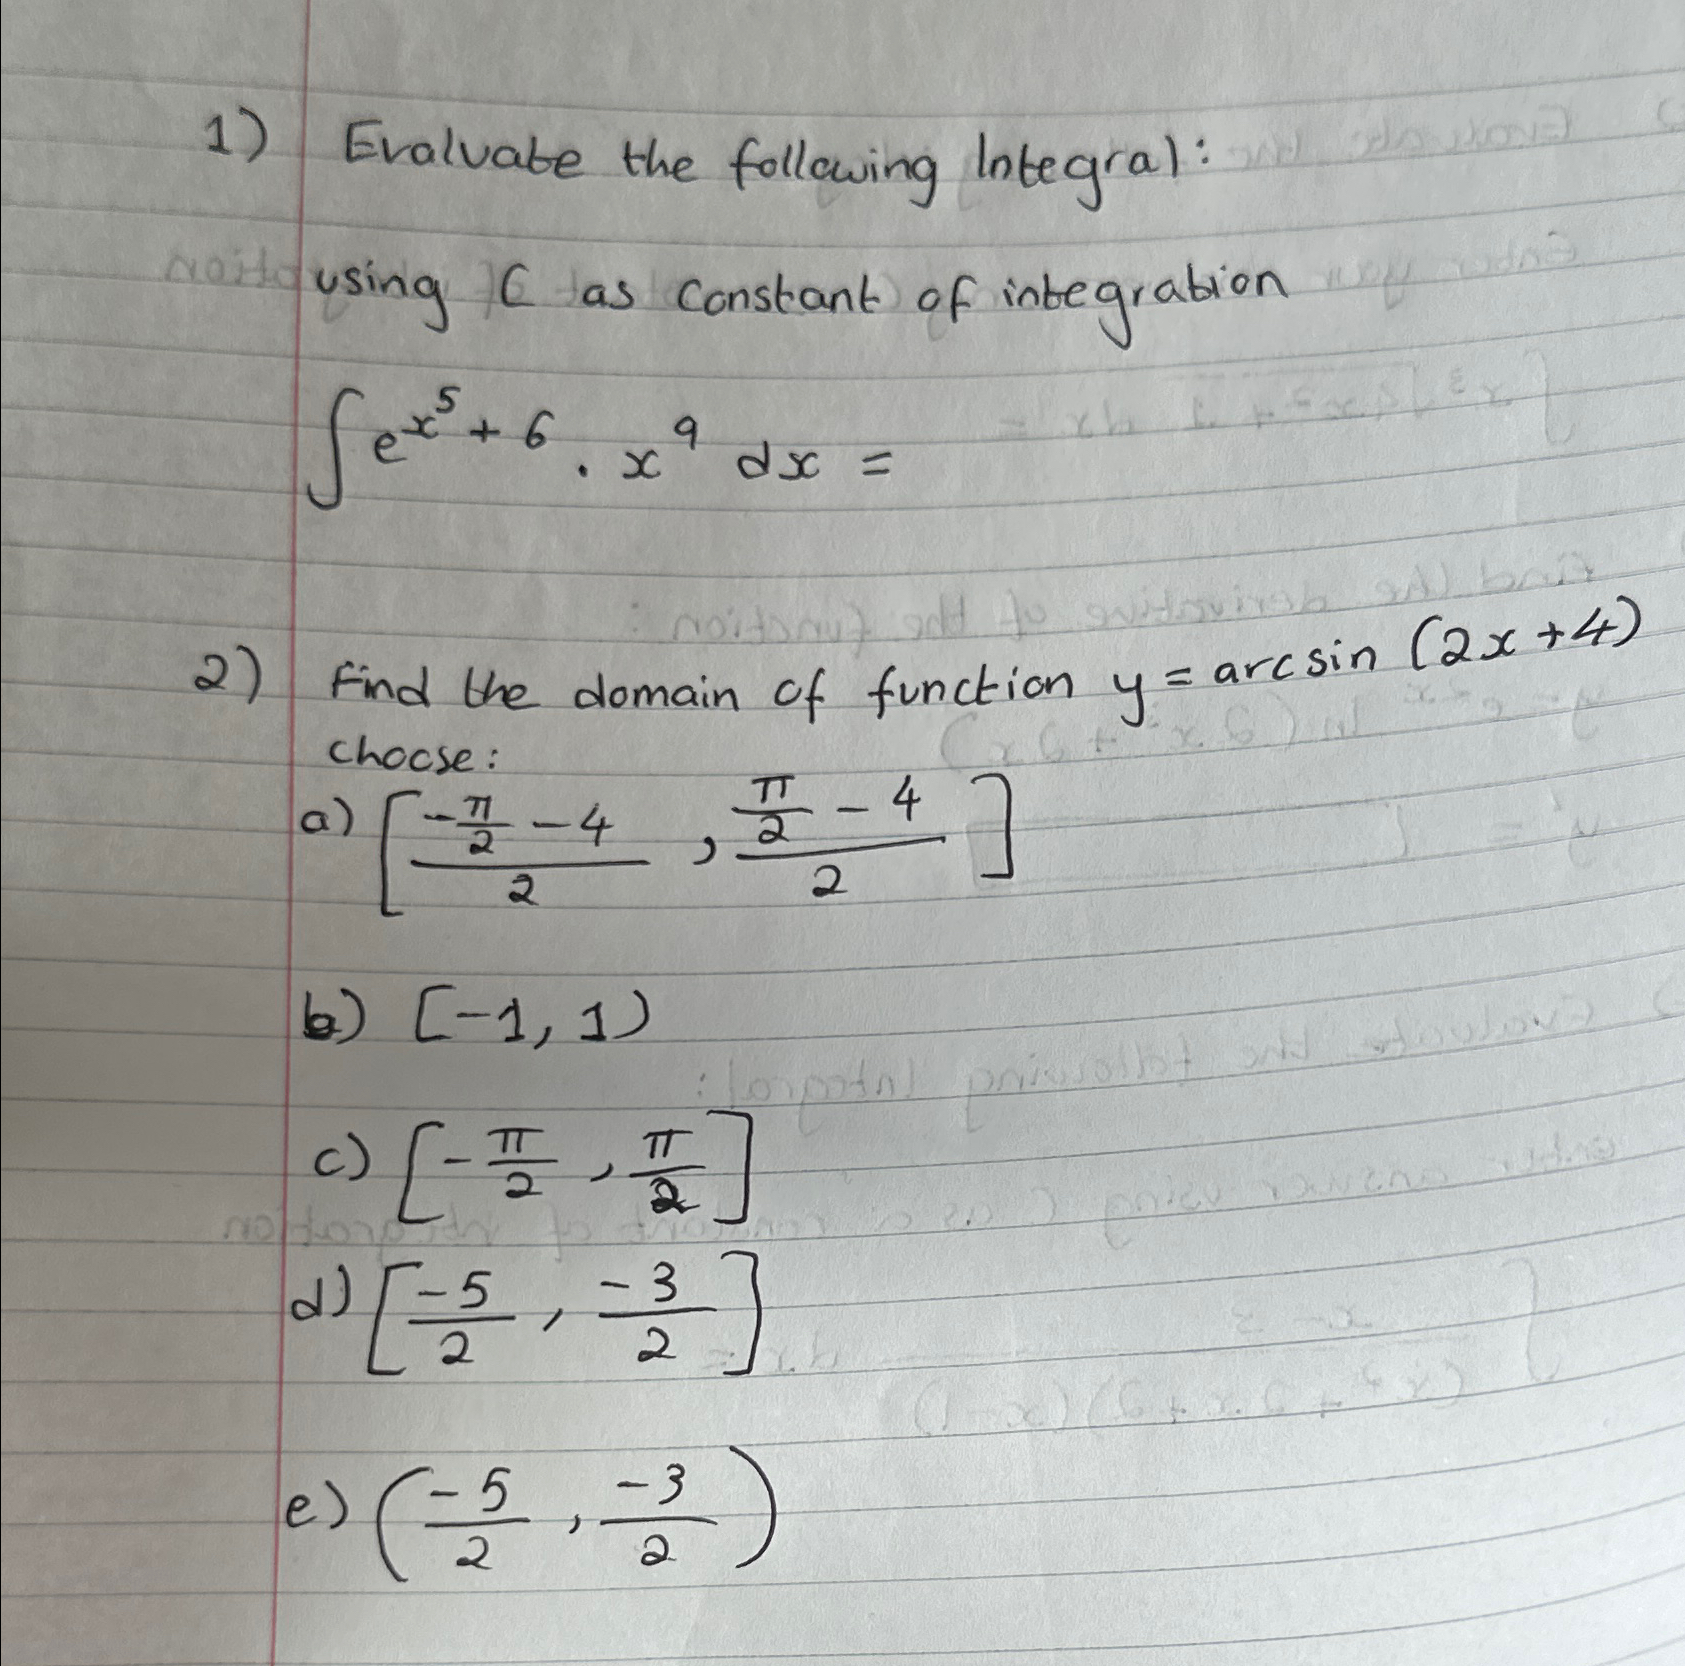 1) Evaluate the following Integral:
using C as constant of integration
∫ e^{x^5 + 6} . x^9 dx =
2) Find the domain of function y = arcsin (2x + 4)
choose:
a) [ (-π/2 - 4)/2 , (π/2 - 4)/2 ]
b) [-1, 1)
c) [ -π/2 , π/2 ]
d) [ -5/2 , -3/2 ]
e) ( -5/2 , -3/2 )